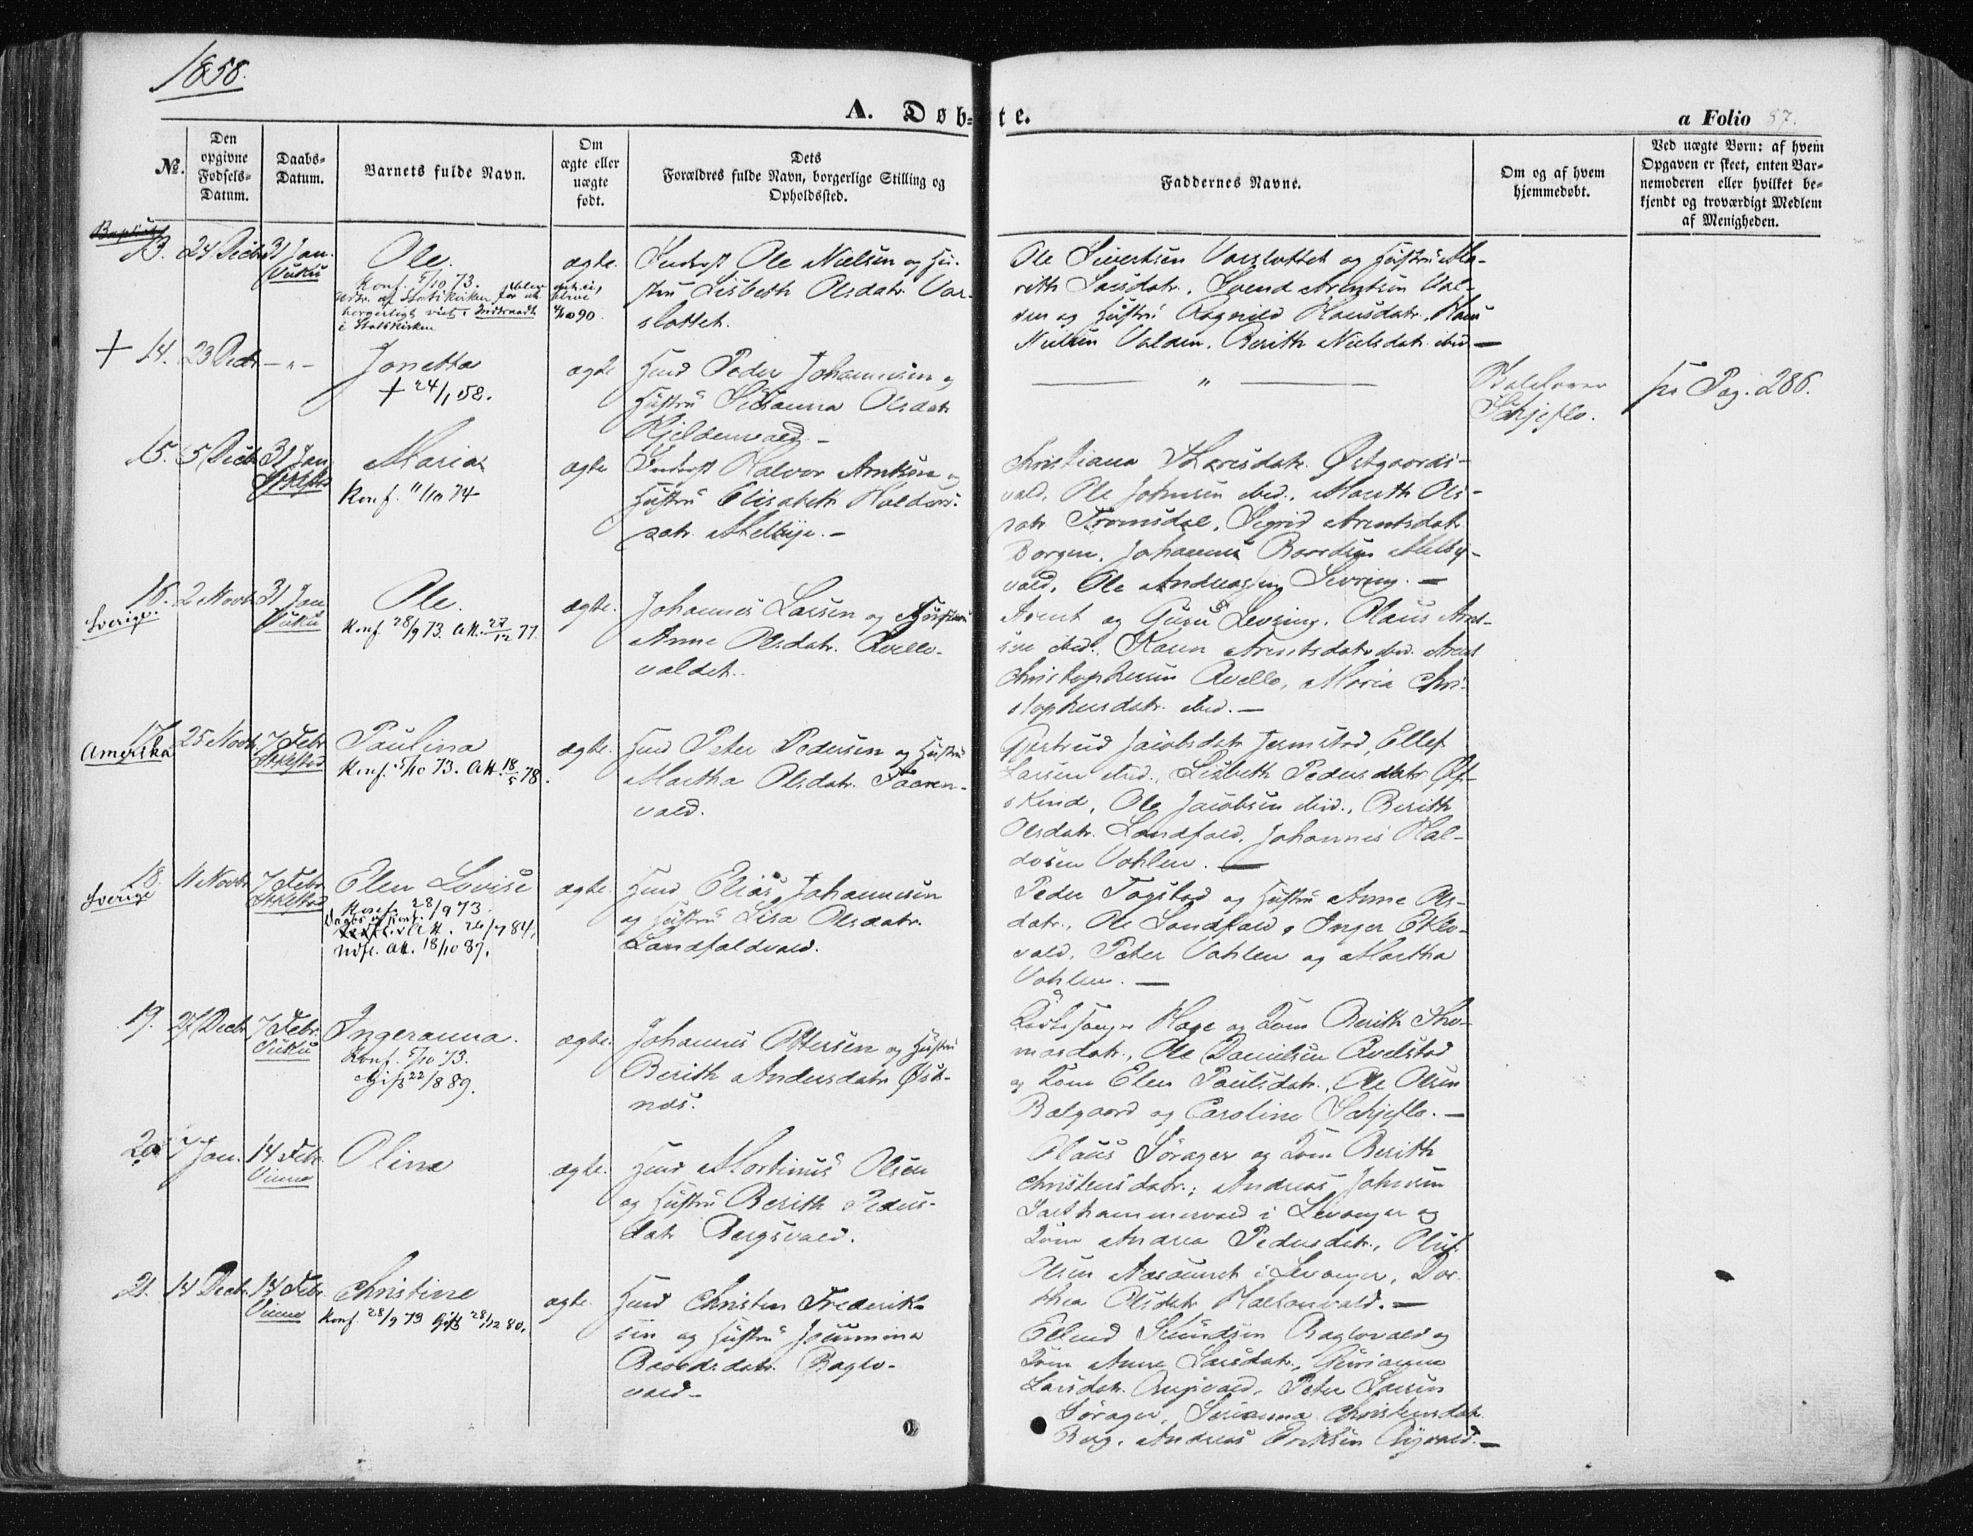 1858.
A. Døb-
te.
a Folio 87.
№.
Den
opgivne
Fødsels-
Datum.
Daabs-
Datum.
Barnets fulde Navn.
Om
ægte eller
uægte
født.
Dets
Forældres fulde Navn, borgerlige Stilling og
Opholdssted.
Faddernes Navne.
Om og af hvem
hjemmedøbt.
Ved uægte Børn: af hvem
Opgaven er skeet, enten Bar-
nemoderen eller hvilket be-
kjendt og troværdigt Medlem
af Menigheden.
13. 24 Decbr 31 Jan.
Vuku
Ole.
Konf. 5/10 73.
i Statskirken
ægte.
Ole Nielsen og Hu-
stru Lisbeth Olsdatr. Var-
slottet.
Ole Sivertsen Varslottet og Hustru Ma-
reth Larsdatr. Svend Arentsen Val-
den og Hustru Ragnild Hansdatr. Hans
Nielsen Valden. Berith Nielsdatr. ibid —
+ 14. 23 Decbr — " —
Jonetta
+ 24/1 58.
ægte
Huusmd Peder Johannesen og
Hustru Susanna Olsdatr
Kjeldenvald. —
— " —
Schjeflo.
Pag. 286.
15. 5 Decbr 31 Jan
Maria
Konf. 11/10 74
ægte
Halvor Arntsen og
Hustru Elisabeth Haldors-
datr. Melbye. —
Christiana Larsdatr. Østgaards-
vald, Ole Johnsen ibid., Mareth Ols-
datr. Tromsdal, Sigrid Arentsdatr
Borgen, Johannes Baardsen Melby-
vald, Ole Andreassen Levring. —
16. 2 Novbr 31 Jan
Sverige
Vuku
Ole.
Konf. 28/9 73. Att. 27/12 77.
ægte.
Johannes Larsen og Hustru
Anne Olsdatr. Avello-
valdet.
Arent og Guru Levring. Olaus Arnt-
sen ibid. Karen Arentsdatr ibid. Arent
Christophersen Avello, Maria Chri-
stophersdatr. ibid. —
17. 25 Novbr 7 Febr.
Amerika
Paulina
Konf. 5/10 73. Att. 18/5 78.
ægte.
Huusmd Peter Pedersen og Hustru
Martha Olsdatr. Faaren-
vald.
Gertrud Jacobsdatr Jermstad, Ellef
Larsen ibid., Lisbeth Pedersdatr Øf-
skind, Ole Jacobsen ibid., Berith
Olsdatr. Landfald, Johannes Hal-
dosen Vohlen. —
18. 11 Novbr 7 Febr
Sverige
Elen Lovise
Konf. 28/9 73.
Att. 26/7 84,
Att. 18/10 87.
ægte.
Huusmd Elias Johannesen
og Hustru Lisa Olsdatr.
Landfaldvald.
Peder Togstad og Hustru Anne Ols-
datr., Ole Landfald, Inger Eklo-
vald, Peter Vohlen og Martha
Vohlen. —
19. 27 Decbr 7 Febr.
Vuku
Ingeranna.
Konf. 5/10 73.
Gift 22/8 89.
ægte.
Johannes Ottersen og Hustru
Berith Andersdatr Øst-
nes.
Kirkesanger Hage og Kone Berith Tho-
masdatr., Ole Danielsen Avelstad
og Kone Elen Paulsdatr., Ole Olsen
Balgaard og Caroline Schjeflo. —
20. 7 Jan. 14 Febr.
Vinne
Olina
ægte.
Huusmd Martinus Olsen
og Hustru Berith Peders-
datr Bergsvald.
Olaus Sørager og Kone Berith
Christensdatr., Andreas Johnsen
i Levanger og
Kone Andrea Pedersdatr., Oluf
Olsen Næsaunet i Levanger, Dor-
thea Olsdatr. —
21. 14 Decbr. 14 Febr.
Vinne
Christine
Konf. 28/9 73 Gift 28/12 80.
ægte.
Huusmd Christen Frederik-
sen og Hustru
Baardsdatr. Baglo-
vald —
Baglovald og
Kone Anne Larsdatr.,
Larsdatr. Peter Larsen
Sørager, Christensdatr.
Berg, Andreas Eriksen —